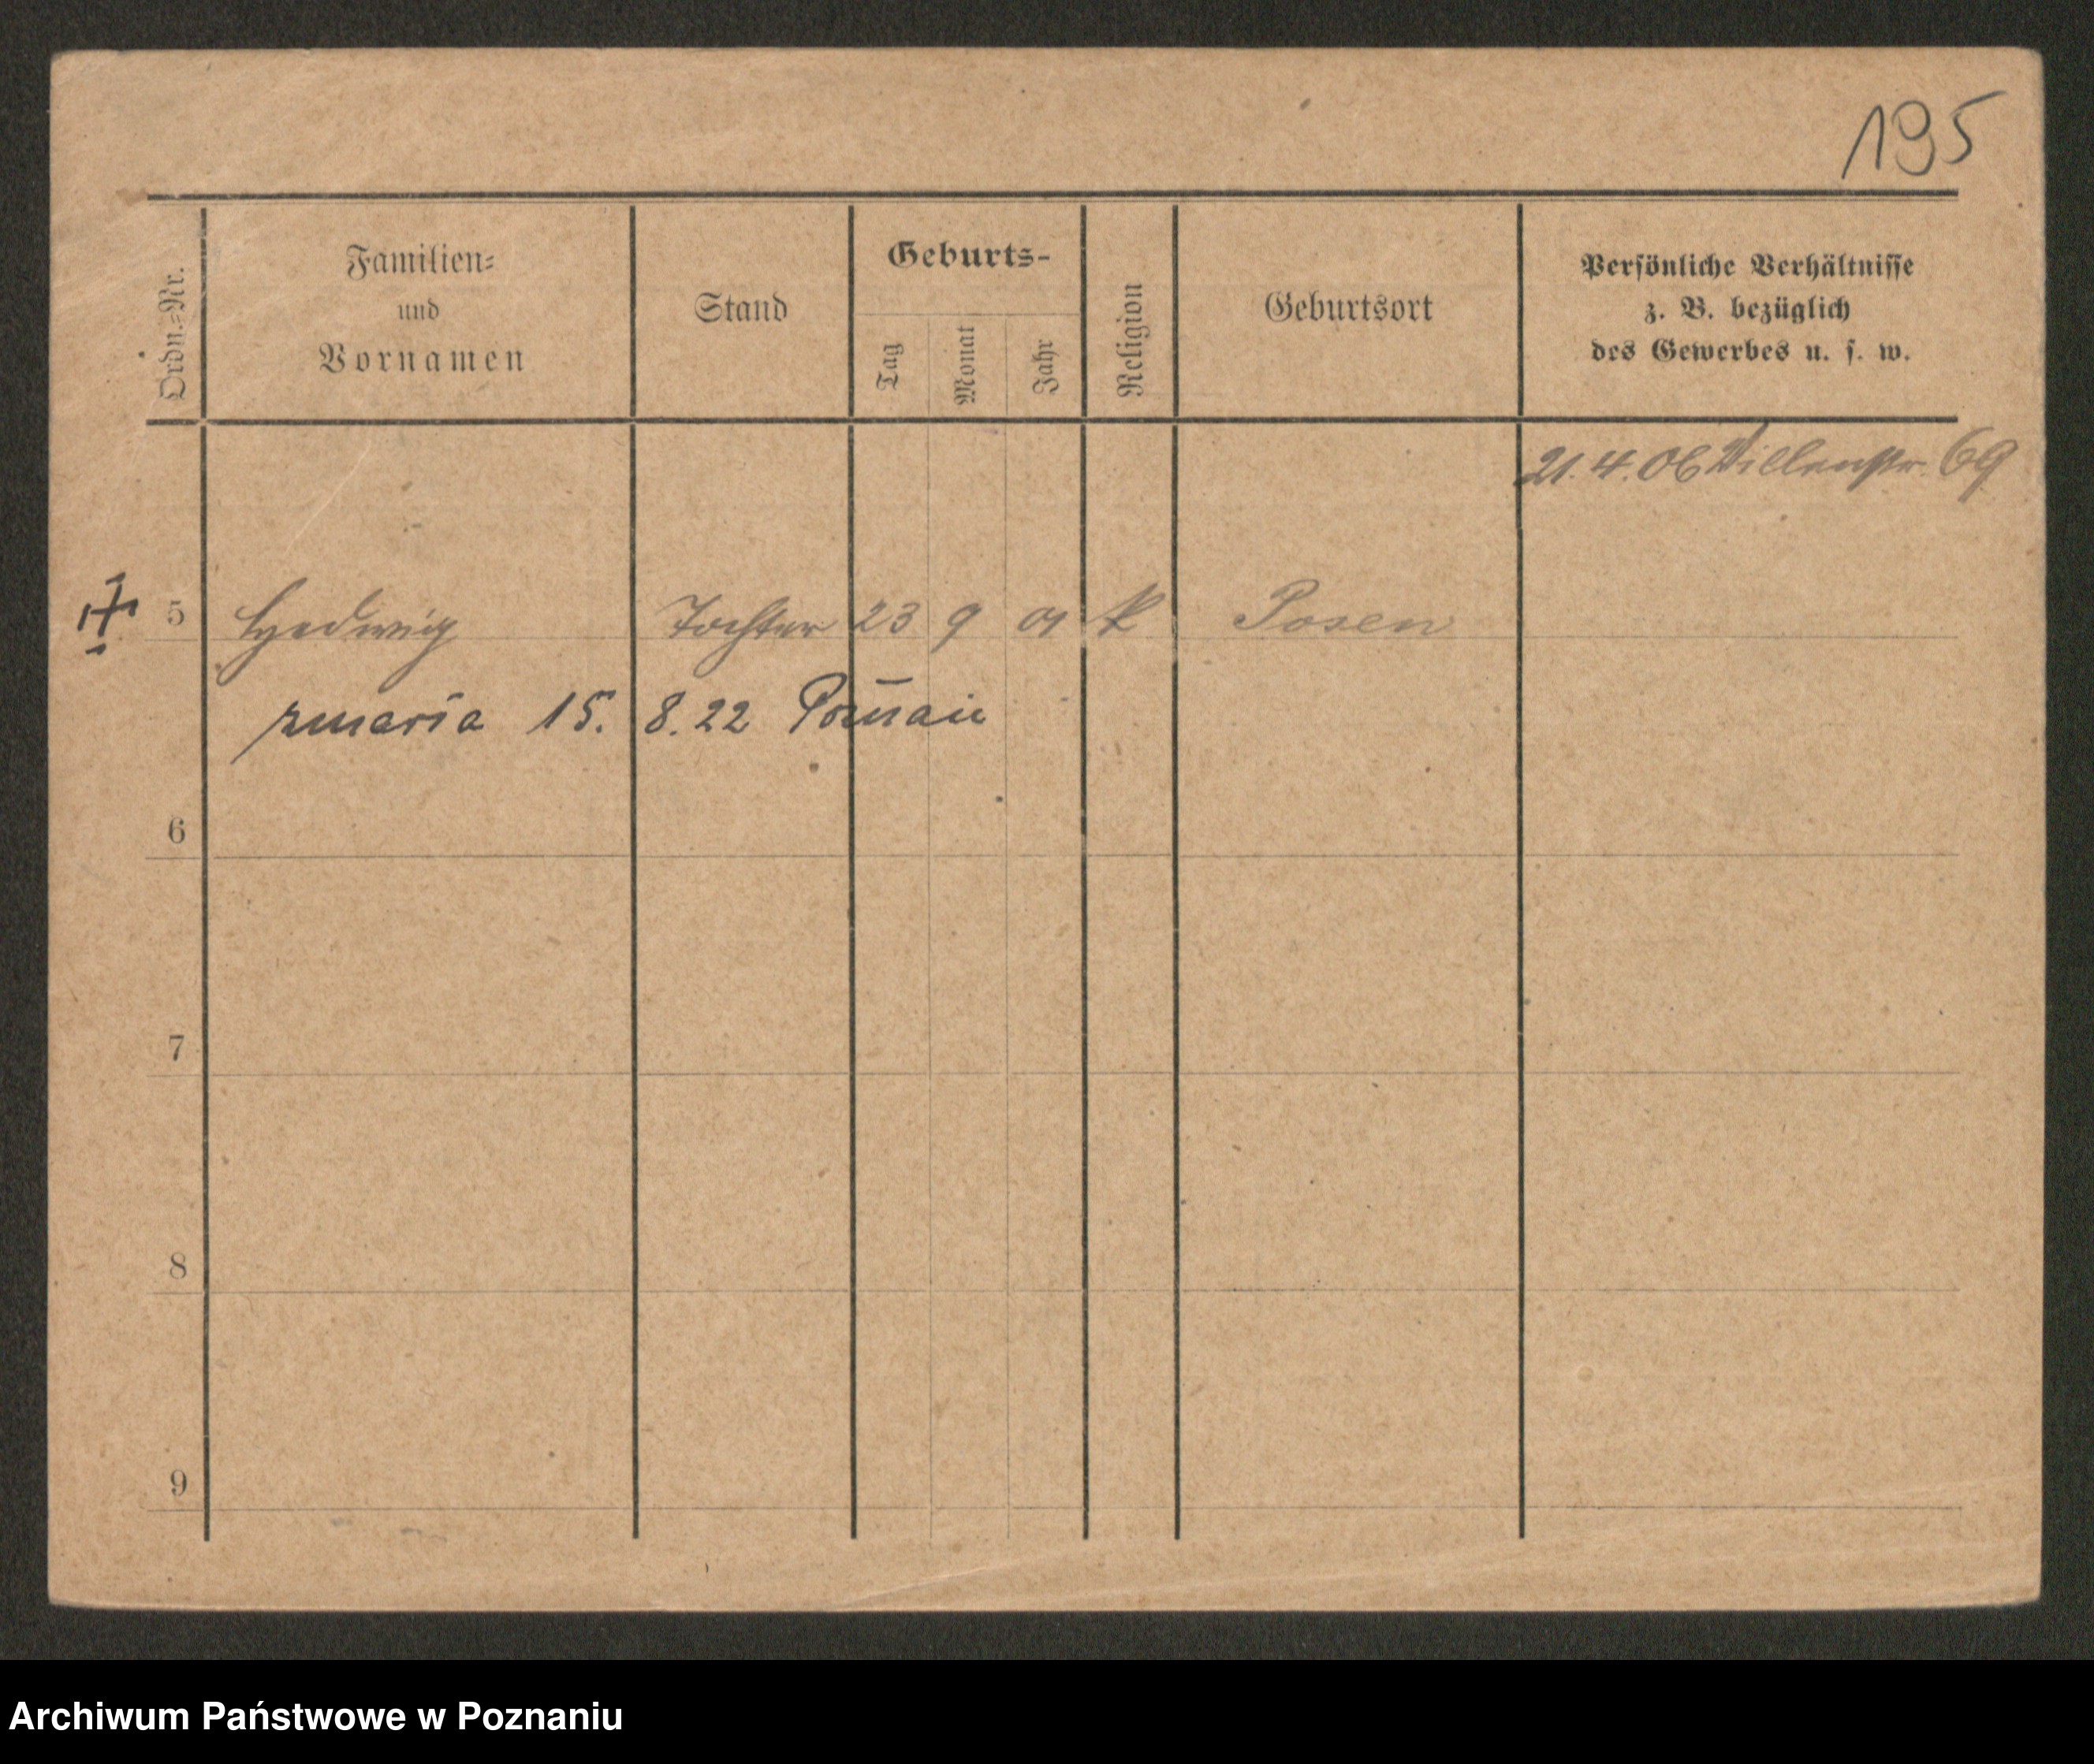 195
Ordn.-Nr.
Familien-
und
Vornamen
Stand
Geburts-
Tag
Monat
Jahr
Religion
Geburtsort
Persönliche Verhältnisse
z. B. bezüglich
des Gewerbes u. s. w.
21.4.06 Villenstr. 69
5 Hedwig Tochter 23 9 01 k Posen
zmarła 15. 8.22 Poznań
6
7
8
9
Archiwum Państwowe w Poznaniu